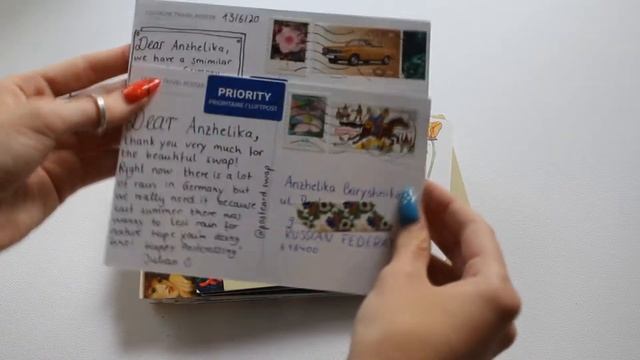 13/6/20
Dear Anzhelika,
we have a smimilar
PRIORITY
PRIORITAIRE / LUFTPOST
DEAR Anzhelika,
thank you very much for
the beautiful swap!
Right now there is a lot
of rain in Germany but
we really need it because
last summer there was
way to less rain for
nature. Hope you're doing
fine! Happy Postcrossing
Julian
@postcard.swap
Anzhelika Baryshnik
ul.
g
RUSSIAN FEDERA